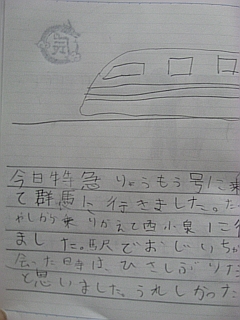 今日特急りょうもう号に乗
て群馬に行きました。た
やしから乗りかえて西小泉に行
ました。駅でおじいちゃ
会った時は、ひさしぶりだ
と思いました。うれしかった